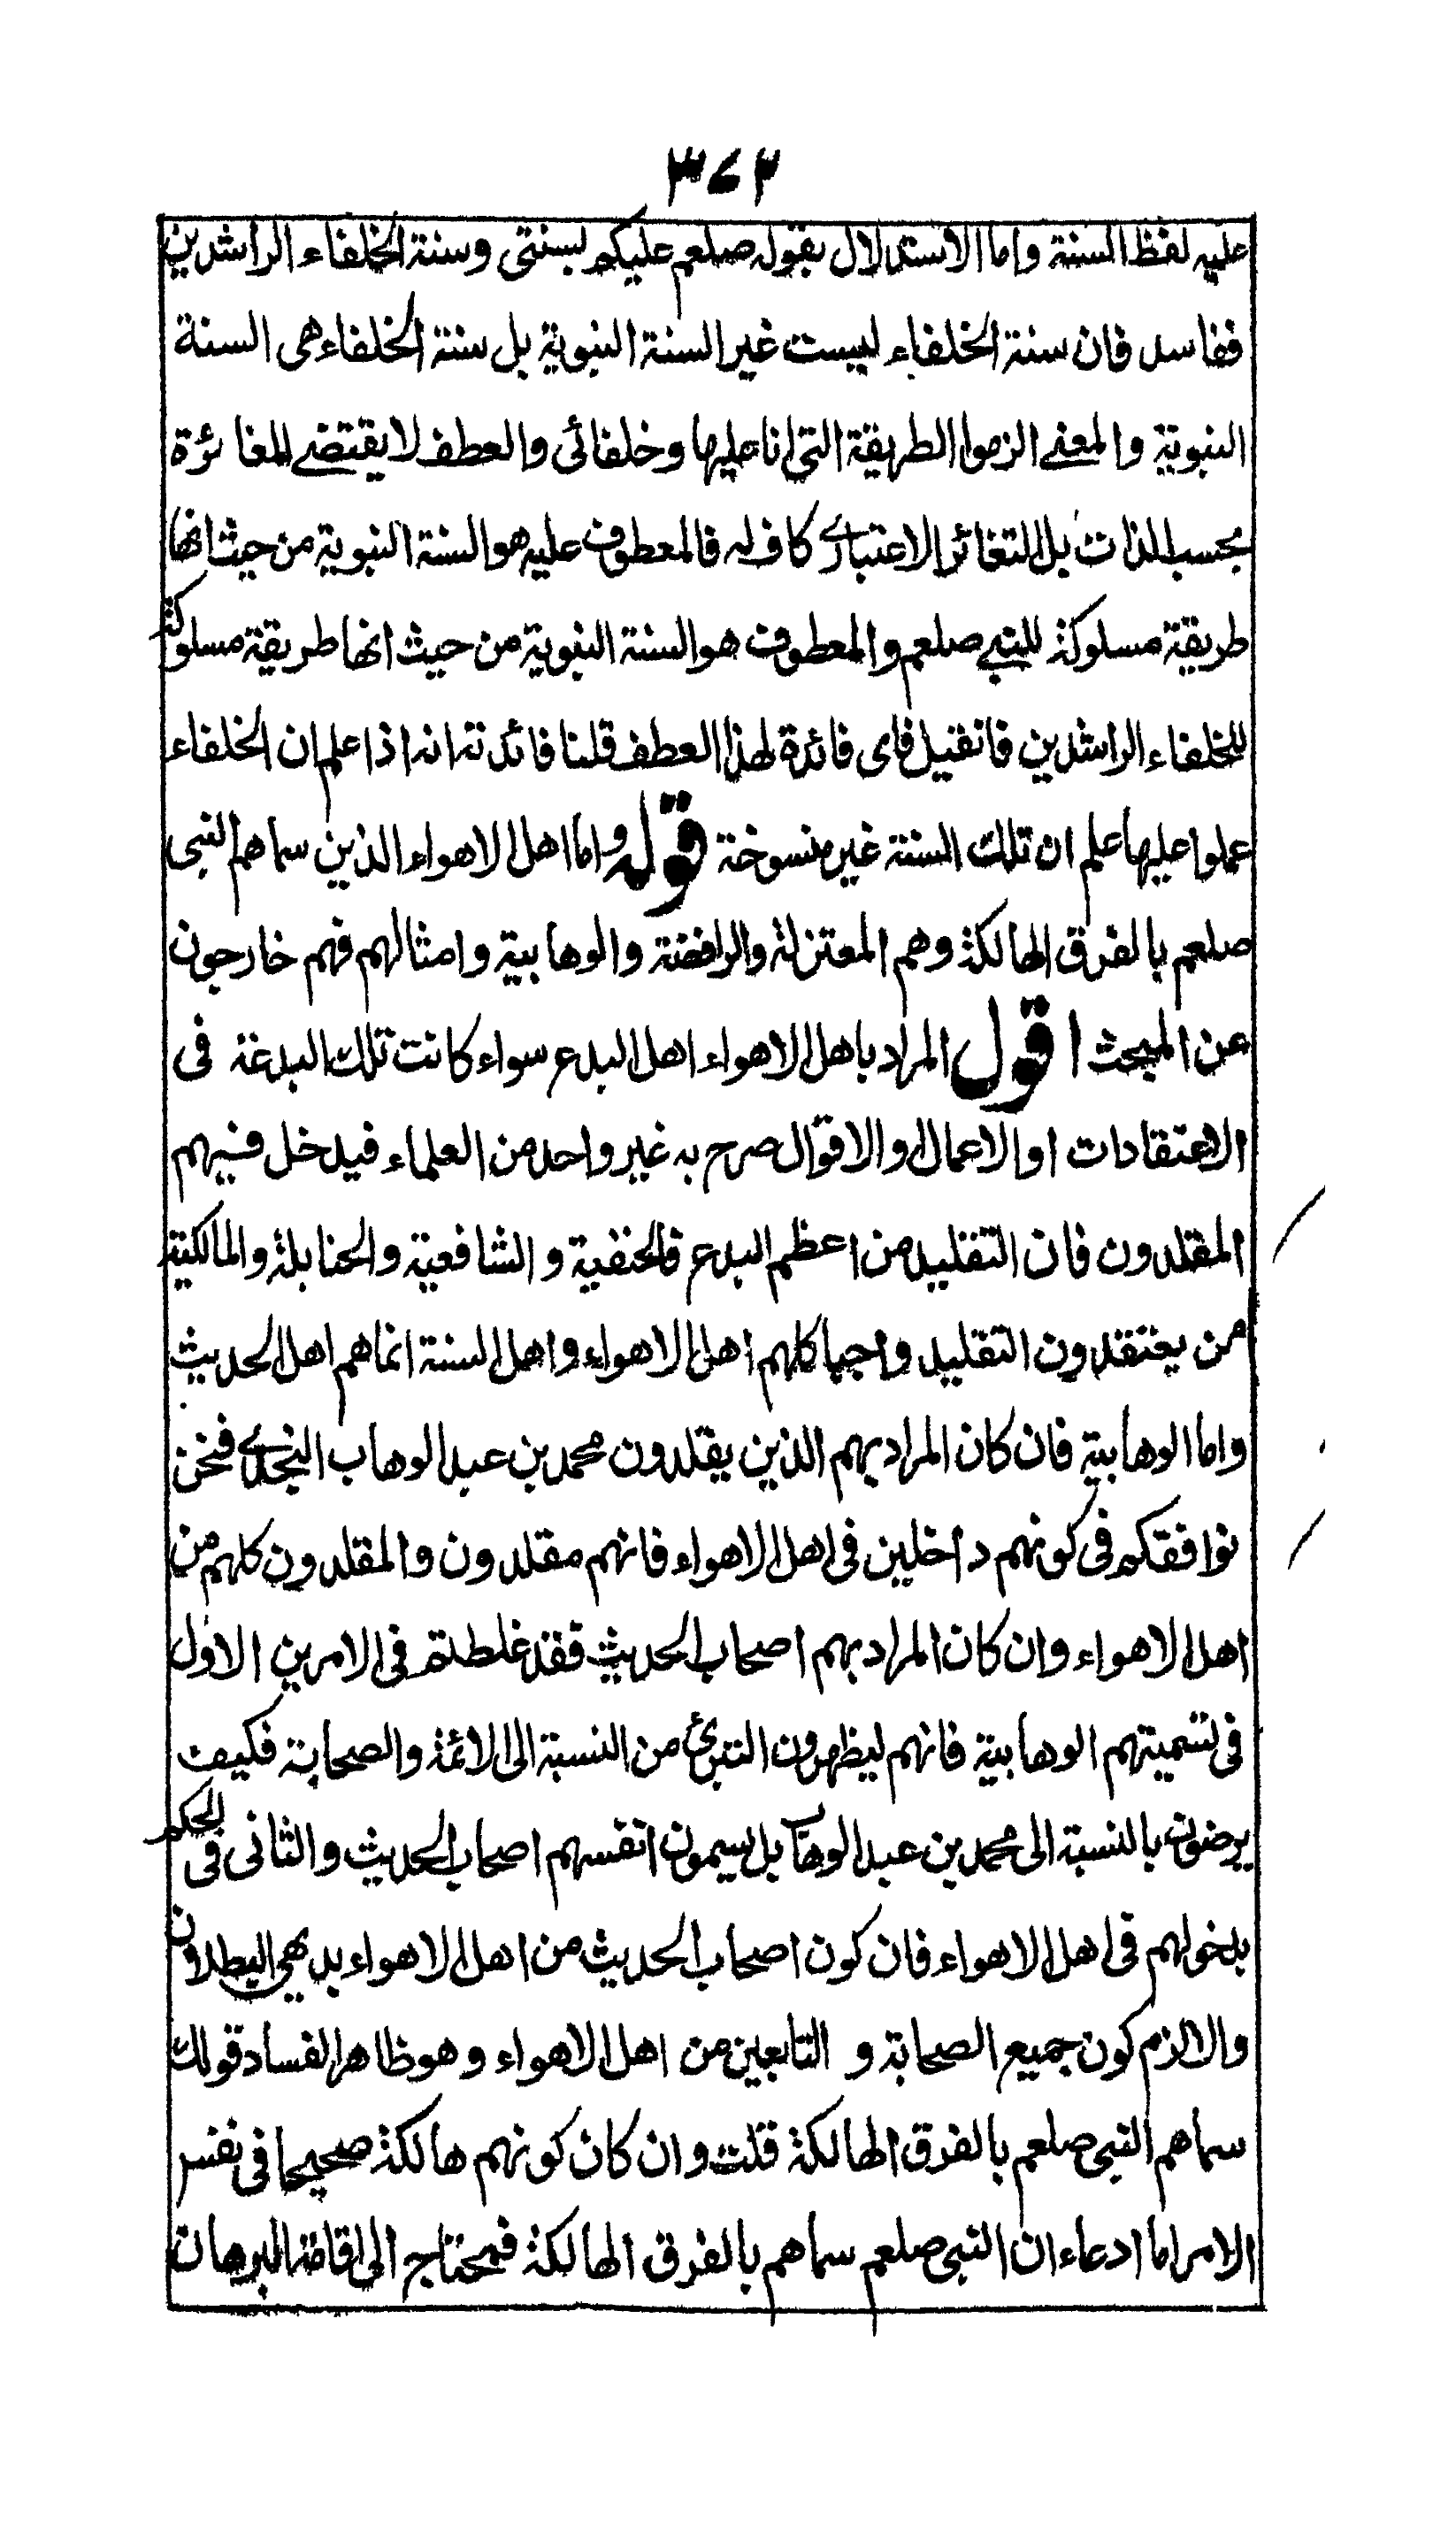 ٣٧٢
عليه لفظ السنة واما الاستدلال بقوله صلعم عليكم بسنتى وسنة الخلفاء الراشدين
ففاسد فان سنة الخلفاء ليست غير السنة النبوية بل سنة الخلفاء هى السنة
النبوية والمعنے الزموا الطريقة التى انا عليها وخلفائى والعطف لا يقتضے المغائرة
بحسب الذات بل التغائر الاعتبارے كاف له فالمعطوف عليه هو السنة النبوية من حيث انها
طريقة مسلوكة للنبے صلعم والمعطوف هو السنة النبوية من حيث انها طريقة مسلوكة
للخلفاء الراشدين فان قيل فاى فائدة لهذا العطف قلنا فائدته انه اذا علم ان الخلفاء
عملوا عليها علم ان تلك السنة غير منسوخة قوله واما اهل الاهواء الذين سماهم النبى
صلعم بالفرق الهالكة وهم المعتزلة والرافضة والوهابية وامثالهم فهم خارجون
عن المبحث اقول المراد باهل الاهواء اهل البدع سواء كانت تلك البدعة فى
الاعتقادات او الاعمال والاقوال صرح به غير واحد من العلماء فيدخل فيهم
المقلدون فان التقليد من اعظم البدع فالحنفية والشافعية والحنابلة والمالكية
ممن يعتقدون التقليد واجبا كلهم اهل الاهواء واهل السنة انما هم اهل الحديث
واما الوهابية فان كان المراد بهم الذين يقلدون محمد بن عبد الوهاب النجدے فنحن
نوافقكم فى كونهم داخلين فى اهل الاهواء فانهم مقلدون والمقلدون كلهم من
اهل الاهواء وان كان المراد بهم اصحاب الحديث فقد غلطتم فى الامرين الاول
فى تسميتهم الوهابية فانهم ليظهرون التبرئ من النسبة الى الائمة والصحابة فكيف
يرضون بالنسبة الى محمد بن عبد الوهاب بل يسمون انفسهم اصحاب الحديث والثانى فى الحكم
بدخولهم فى اهل الاهواء فان كون اصحاب الحديث من اهل الاهواء بديهى البطلان
والا لزم كون جميع الصحابة و التابعين من اهل الاهواء وهو ظاهر الفساد قولك
سماهم النبى صلعم بالفرق الهالكة قلت وان كان كونهم هالكة صحيحا فى نفس
الامر اما ادعاء ان النبى صلعم سماهم بالفرق الهالكة فمحتاج الى اقامة البرهان